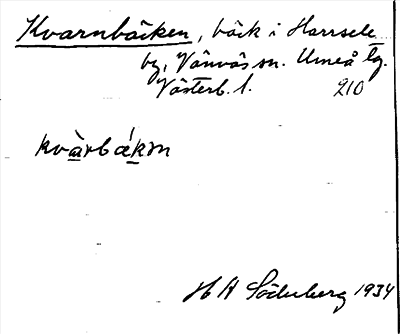 Kvarnbäcken, bäck i Harrsele
by, Vännäs sn. Umeå tg.
Västerb. l. 210
kvàrbákm
H A Söderberg 1934